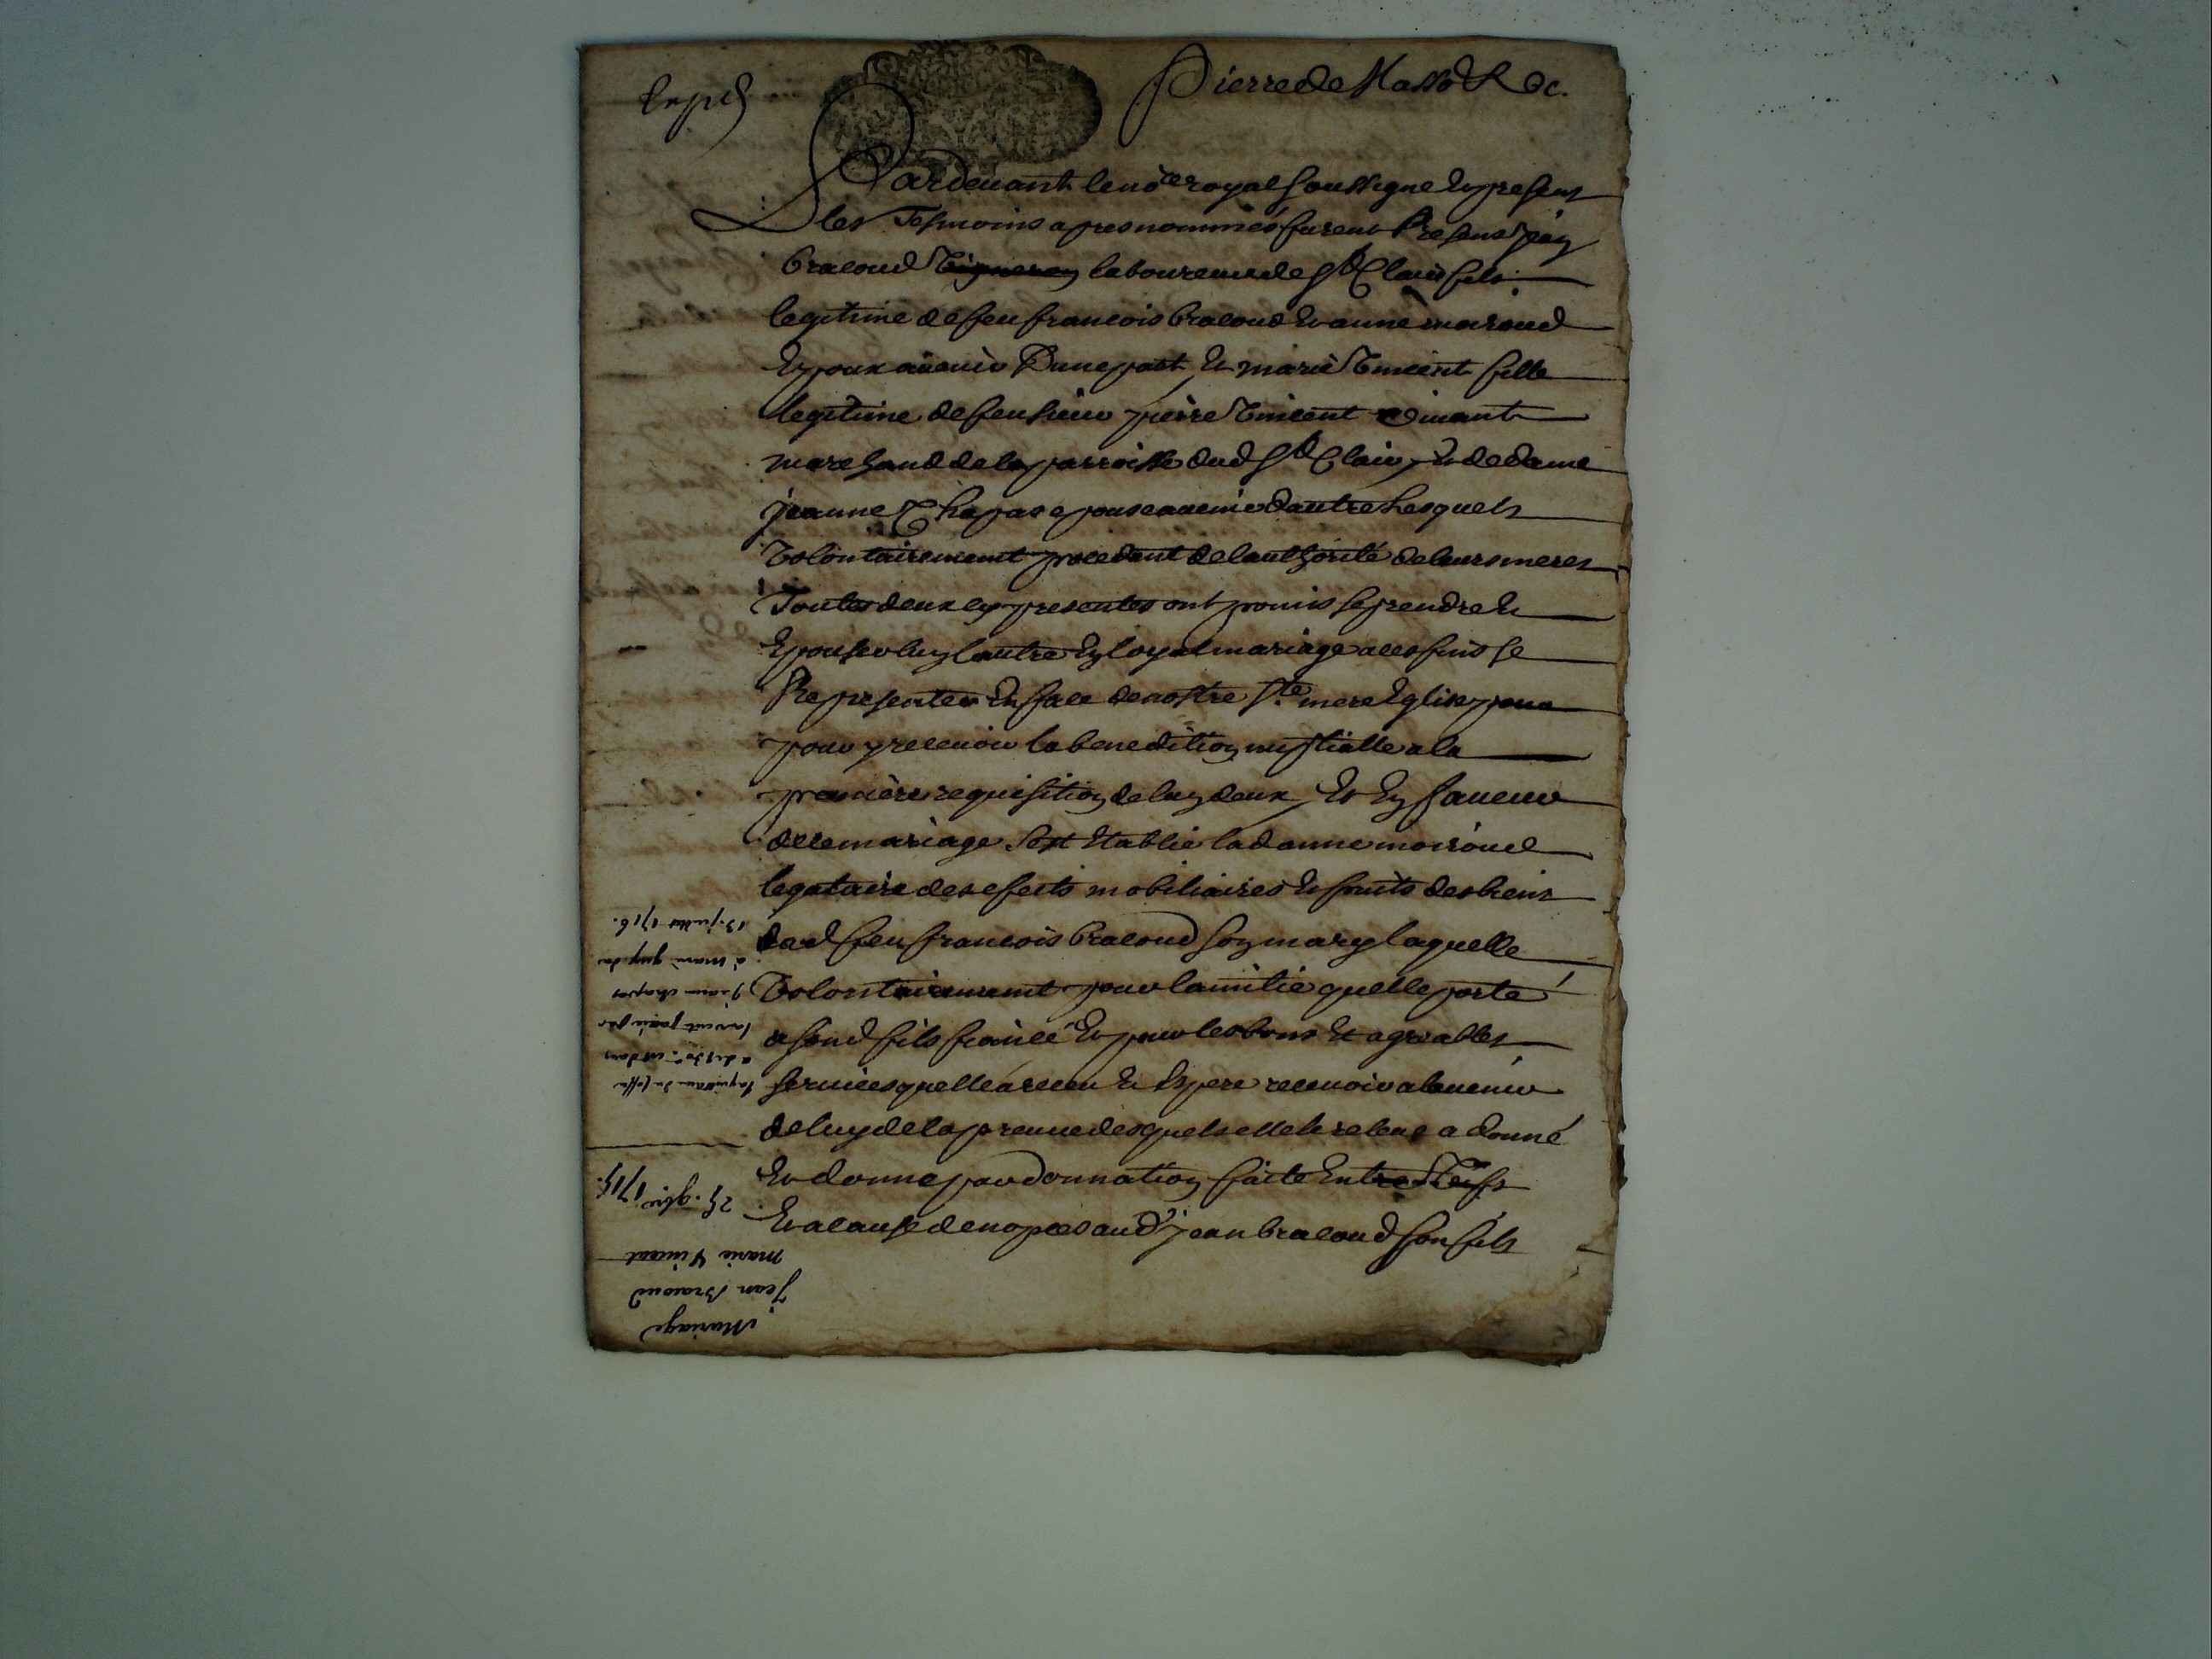 Exped
Pierre de Masso R &c.
Pardevant le no.re royal soussigne Et presens
les Tesmoins apres nommés furent Presens Jean
bracoud laboureur de St Clair fils
legitime de feu francois bracoud Et anne moiroud
Epoux aduenir D'une part Et marie Vincent fille
legitime de feu sieur pierre Vincent viuant
marchand de la parroisse dud St Clair, Et de dame
jeanne Chapas epouse aduenir d'autre Lesquels
Volontairement procedant de l'authorité de leurs meres
Toutes deux icy presentes ont promis se prendre Et
Epouser l'un l'autre En loyal mariage a ces fins se
Representer En face de nostre Ste mere Eglise pour
pour y receuoir la benedition nuptialle a la
premiere requisition de l'un deux, Et En faueur
de ce mariage s'est Etablie lad anne moiroud
legataire des efects mobiliaires Et fruits des biens
dud feu francois bracoud son mary laquelle
Volontairement pour l'amitié quelle porte
a sond fils fiancé Et pour les bons Et agreables
seruices quelle a receu Et Espere receuoir a laduenir
de luy de la preuue desquels elle le releue a donné
Et donne par donnation faite Entre Vifs
Et a cause de nopces aud jean bracoud son fils
Mariage
Jean Bracoud
marie Vincent
25. 9bre 1715.
13. juillet 1716.